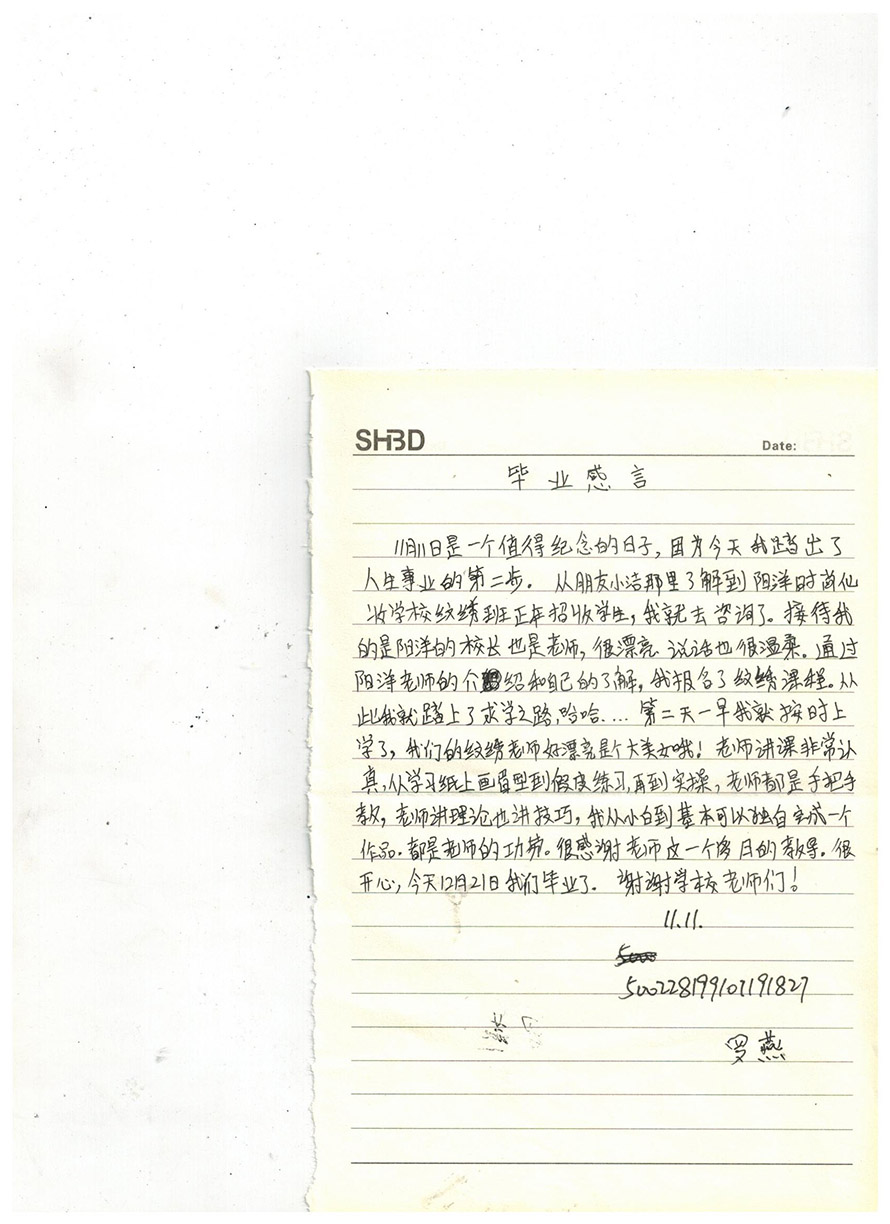 SHBD
Date:
毕业感言
11月11日是一个值得纪念的日子，因为今天我踏出了
人生事业的第二步．从朋友小洁那里了解到阳洋时尚
妆学校纹绣班正年招收学生，我就去咨询了。接待我
的是阳洋的校长也是老师，很漂亮 说话也很温柔。通过
阳洋老师的介绍和自己的了解，我报名了纹绣课程。从
此我就踏上了求学之路，哈哈．．．．第二天一早我就按时上
学了，我们的纹绣老师好漂亮是个大美女哦！老师讲课非常认
真，从学习纸上画眉型到假皮练习，再到实操，老师都是手把手
教，老师讲理论也讲技巧，我从小白到基本可以独自完成一个
作品．都是老师的功劳。很感谢老师这一个多月的教导．很
开心，今天12月21日我们毕业了．谢谢学校老师们！
11.11.
500228199107191827
罗燕